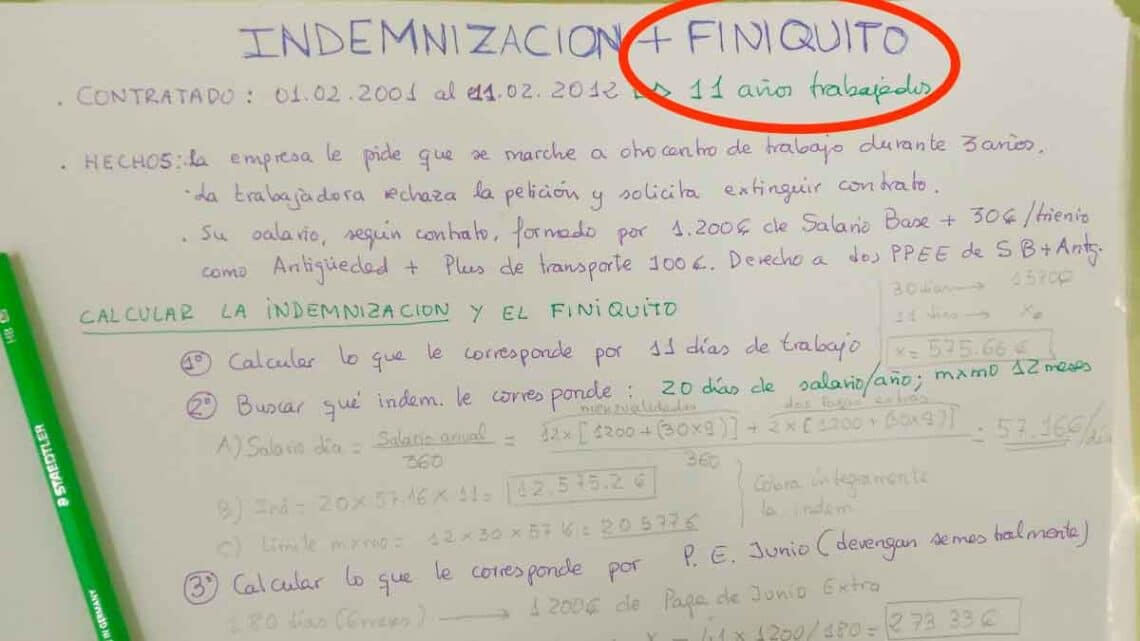 INDEMNIZACION + FINIQUITO
. CONTRATADO : 01.02.2001 al 11.02.2012 => 11 años trabajados
. HECHOS: la empresa le pide que se marche a otro centro de trabajo durante 3 años.
· La trabajadora rechaza la petición y solicita extinguir contrato.
. Su salario, según contrato, formado por 1.200€ de Salario Base + 30€/trienio
como Antigüedad + Plus de transporte 100€. Derecho a dos PPEE de SB + Antg.
30 dias → 1570€
CALCULAR LA INDEMNIZACION Y EL FINIQUITO
11 dias → x
1º Calcular lo que le corresponde por 11 días de trabajo
x = 575.66 €
2º Buscar qué indem. le corresponde : 20 días de salario/año; mxmo 12 meses
mensualidades dos Pagas extras
A) Salario día = Salario anual / 360 = 12x[1200+(30x9)] + 2x[1200+(30x9)] / 360 = 57.16€/día
B) Ind = 20 x 57.16 x 11 = 12.575.2 €
Cobra íntegramente
la indem
C) Límite mxmo = 12 x 30 x 57 16 = 20577€
3º Calcular lo que le corresponde por P. E. Junio (devengan semestralmente)
180 días (6 meses) → 1200€ de Paga de Junio Extra
x 1200/180 = 273.33€
STAEDTLER
HB
IN GERMANY